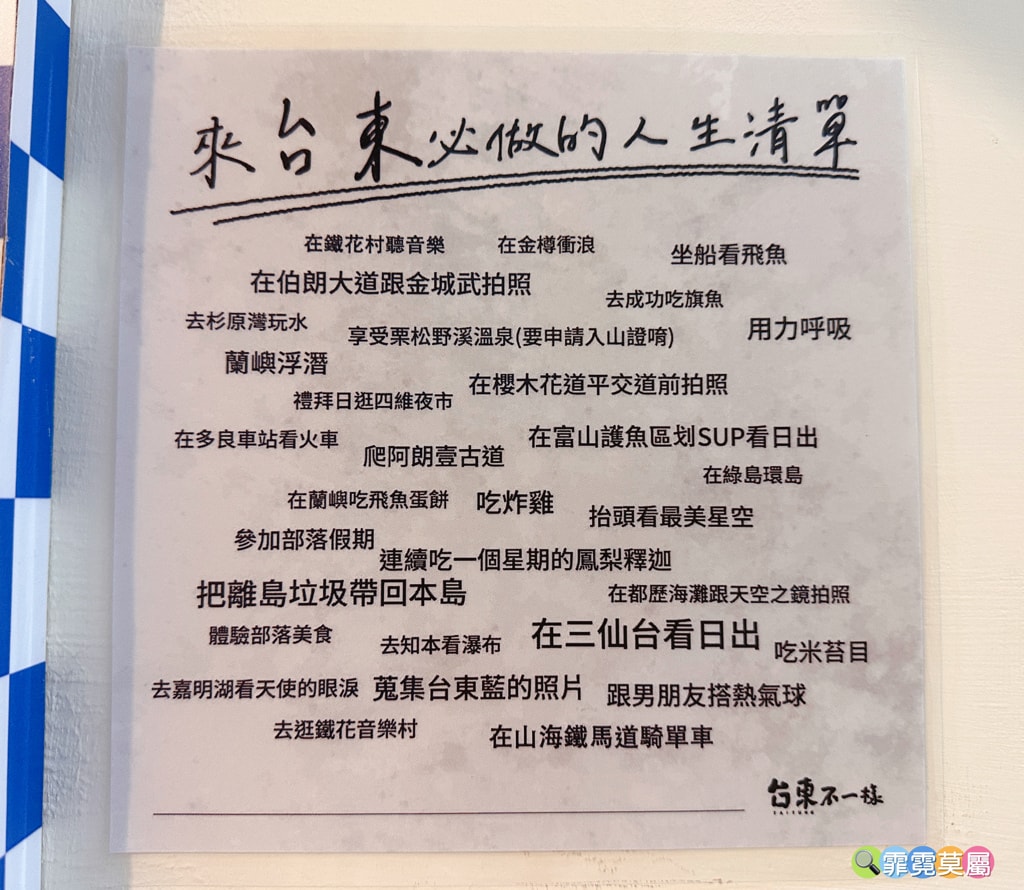 來台東必做的人生清單
在鐵花村聽音樂
在金樽衝浪
坐船看飛魚
在伯朗大道跟金城武拍照
去成功吃旗魚
去杉原灣玩水
享受栗松野溪溫泉(要申請入山證唷)
用力呼吸
蘭嶼浮潛
在櫻木花道平交道前拍照
禮拜日逛四維夜市
在多良車站看火車
爬阿朗壹古道
在富山護魚區划SUP看日出
在綠島環島
在蘭嶼吃飛魚蛋餅
吃炸雞
抬頭看最美星空
參加部落假期
連續吃一個星期的鳳梨釋迦
把離島垃圾帶回本島
在都歷海灘跟天空之鏡拍照
體驗部落美食
去知本看瀑布
在三仙台看日出
吃米苔目
去嘉明湖看天使的眼淚
蒐集台東藍的照片
跟男朋友搭熱氣球
去逛鐵花音樂村
在山海鐵馬道騎單車
台東不一樣
TAITUNG
霏霓莫屬